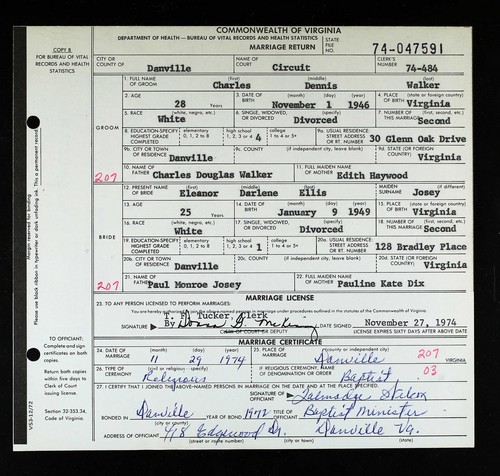 COMMONWEALTH OF VIRGINIA
DEPARTMENT OF HEALTH — BUREAU OF VITAL RECORDS AND HEALTH STATISTICS
MARRIAGE RETURN
STATE FILE NO. 74-047591
COPY B
FOR BUREAU OF VITAL RECORDS AND HEALTH STATISTICS
CITY OR COUNTY OF Danville Circuit CLERK'S NUMBER 74-484
GROOM
1. FULL NAME OF GROOM (first) Charles (middle) Dennis (last) Walker
2. AGE 28 3. DATE OF BIRTH (month) November (day) 1 (year) 1946 4. PLACE OF BIRTH (state or foreign country) Virginia
5. RACE (white, negro, etc.) White 6. SINGLE, WIDOWED, OR DIVORCED Divorced 7. NUMBER OF THIS MARRIAGE (first, second, etc.) Second
8. EDUCATION-SPECIFY HIGHEST GRADE COMPLETED elementary 0, 1, 2 to 8 high school 1, 2, 3 or 4 4 college 1 to 4 or 5+ 9a. USUAL RESIDENCE: STREET ADDRESS OR RT. NUMBER 30 Glenn Oak Drive
9b. CITY OR TOWN OF RESIDENCE Danville 9c. COUNTY (if independent city, leave blank) 9d. STATE (or foreign country) Virginia
207 10. NAME OF FATHER Charles Douglas Walker 11. FULL MAIDEN NAME OF MOTHER Edith Haywood
BRIDE
12. PRESENT NAME OF BRIDE (first) Eleanor (middle) Darlene (last) Ellis MAIDEN SURNAME Josey
13. AGE 25 14. DATE OF BIRTH (month) January (day) 9 (year) 1949 15. PLACE OF BIRTH (state or foreign country) Virginia
16. RACE (white, negro, etc.) White 17. SINGLE, WIDOWED, OR DIVORCED Divorced 18. NUMBER OF THIS MARRIAGE (first, second, etc.) Second
19. EDUCATION-SPECIFY HIGHEST GRADE COMPLETED elementary 0, 1, 2 to 8 high school 1, 2, 3 or 4 1 college 1 to 4 or 5+ 20a. USUAL RESIDENCE: STREET ADDRESS OR RT. NUMBER 128 Bradley Place
20b. CITY OR TOWN OF RESIDENCE Danville 20c. COUNTY (if independent city, leave blank) 20d. STATE (or foreign country) Virginia
207 21. NAME OF FATHER Paul Monroe Josey 22. FULL MAIDEN NAME OF MOTHER Pauline Kate Dix
MARRIAGE LICENSE
23. TO ANY PERSON LICENSED TO PERFORM MARRIAGES:
T. F. Tucker, Clerk
SIGNATURE By November 27, 1974
CLERK OF COURT OR DEPUTY LICENSE EXPIRES SIXTY DAYS AFTER ABOVE DATE
MARRIAGE CERTIFICATE
24. DATE OF MARRIAGE (month) 11 (day) 29 (year) 1974 25. PLACE OF MARRIAGE Danville VIRGINIA 207
26. TYPE OF CEREMONY Religious IF RELIGIOUS CEREMONY, NAME OF DENOMINATION OR ORDER Baptist 03
27. I CERTIFY THAT I JOINED THE ABOVE-NAMED PERSONS IN MARRIAGE ON THE DATE AND AT THE PLACE SPECIFIED.
SIGNATURE OF OFFICIANT Talmadge
BONDED IN Danville 1972 Baptist Minister
ADDRESS OF OFFICIANT 418 Edgewood Dr. Danville Va.
Margin reserved for binding
Please use black ribbon in typewriter or dark unfading ink. This is a permanent record.
TO OFFICIANT:
Complete and sign certificates on both copies.
Return both copies within five days to Clerk of Court issuing license.
Section 32-353.34, Code of Virginia.
VS3-12/72